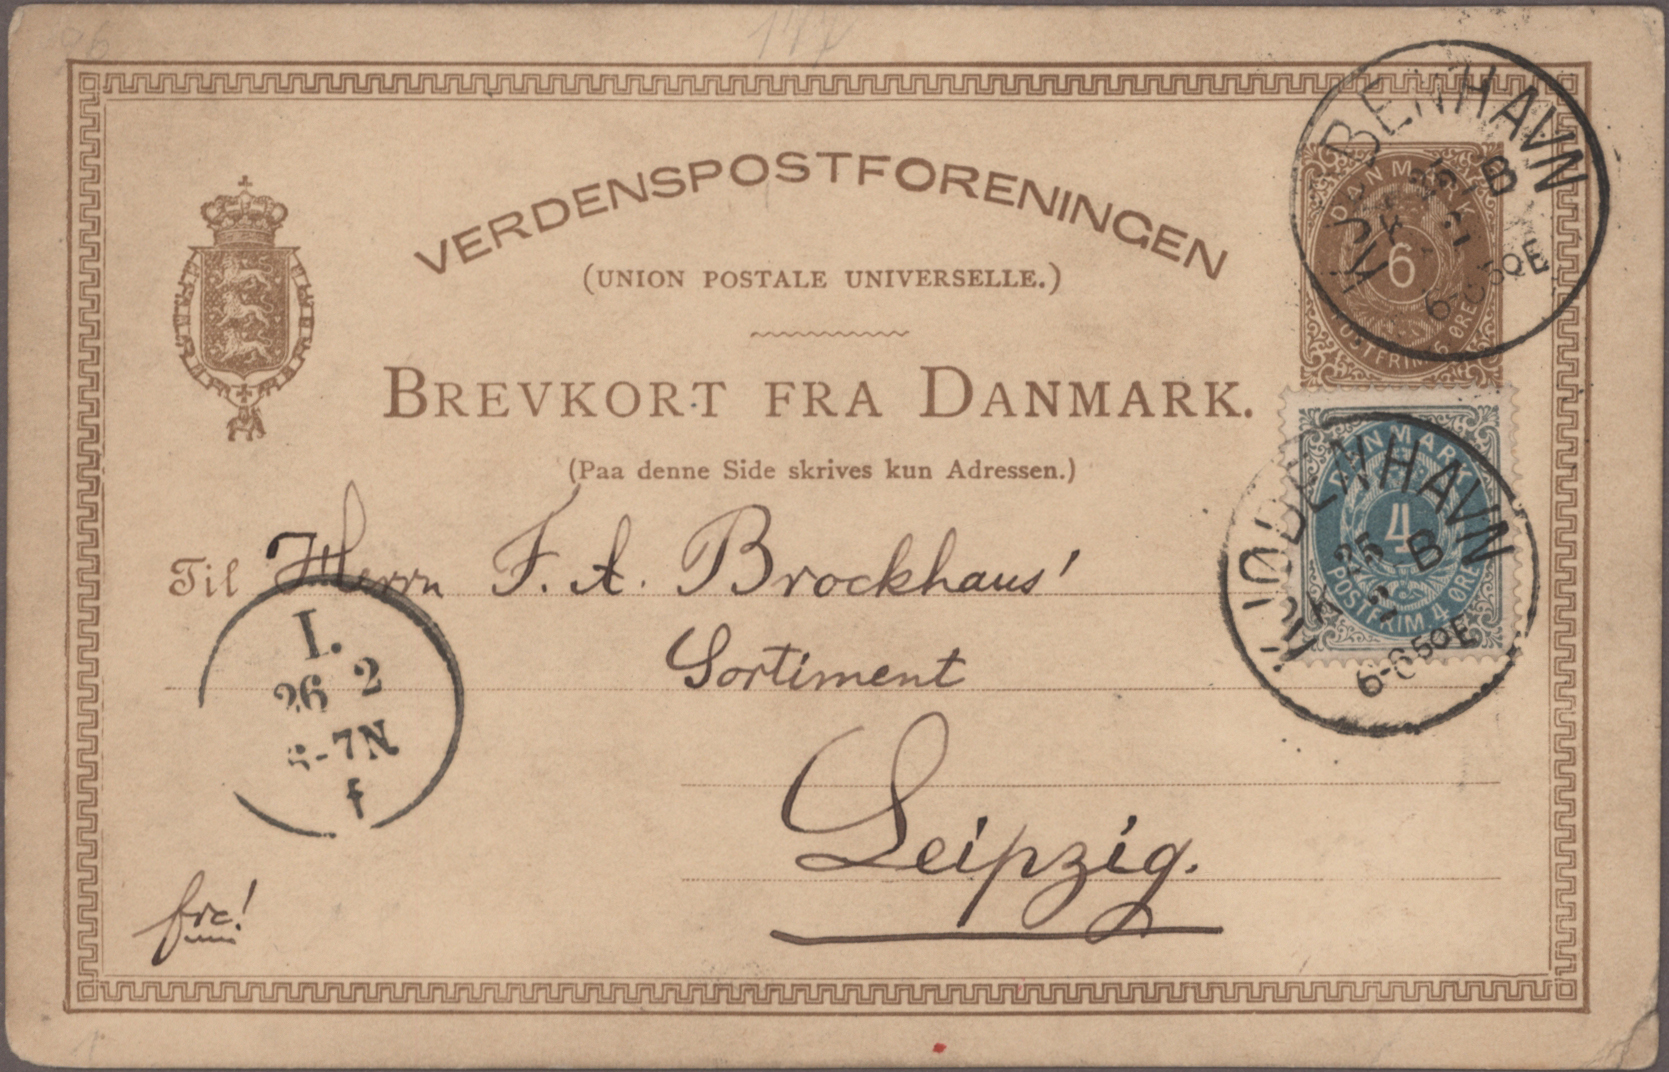 VERDENSPOSTFORENINGEN
(UNION POSTALE UNIVERSELLE.)
BREVKORT FRA DANMARK.
(Paa denne Side skrives kun Adressen.)
DANMARK
6
POSTFRIM. 6 ØRE
KJØBENHAVN
B
DANMARK
4
POSTFRIM. 4 ØRE
KJØBENHAVN
K 25 B
2
6-650E
Til Herrn F. A. Brockhaus'
Sortiment
Leipzig.
I.
26 2
-7N
f
frc!